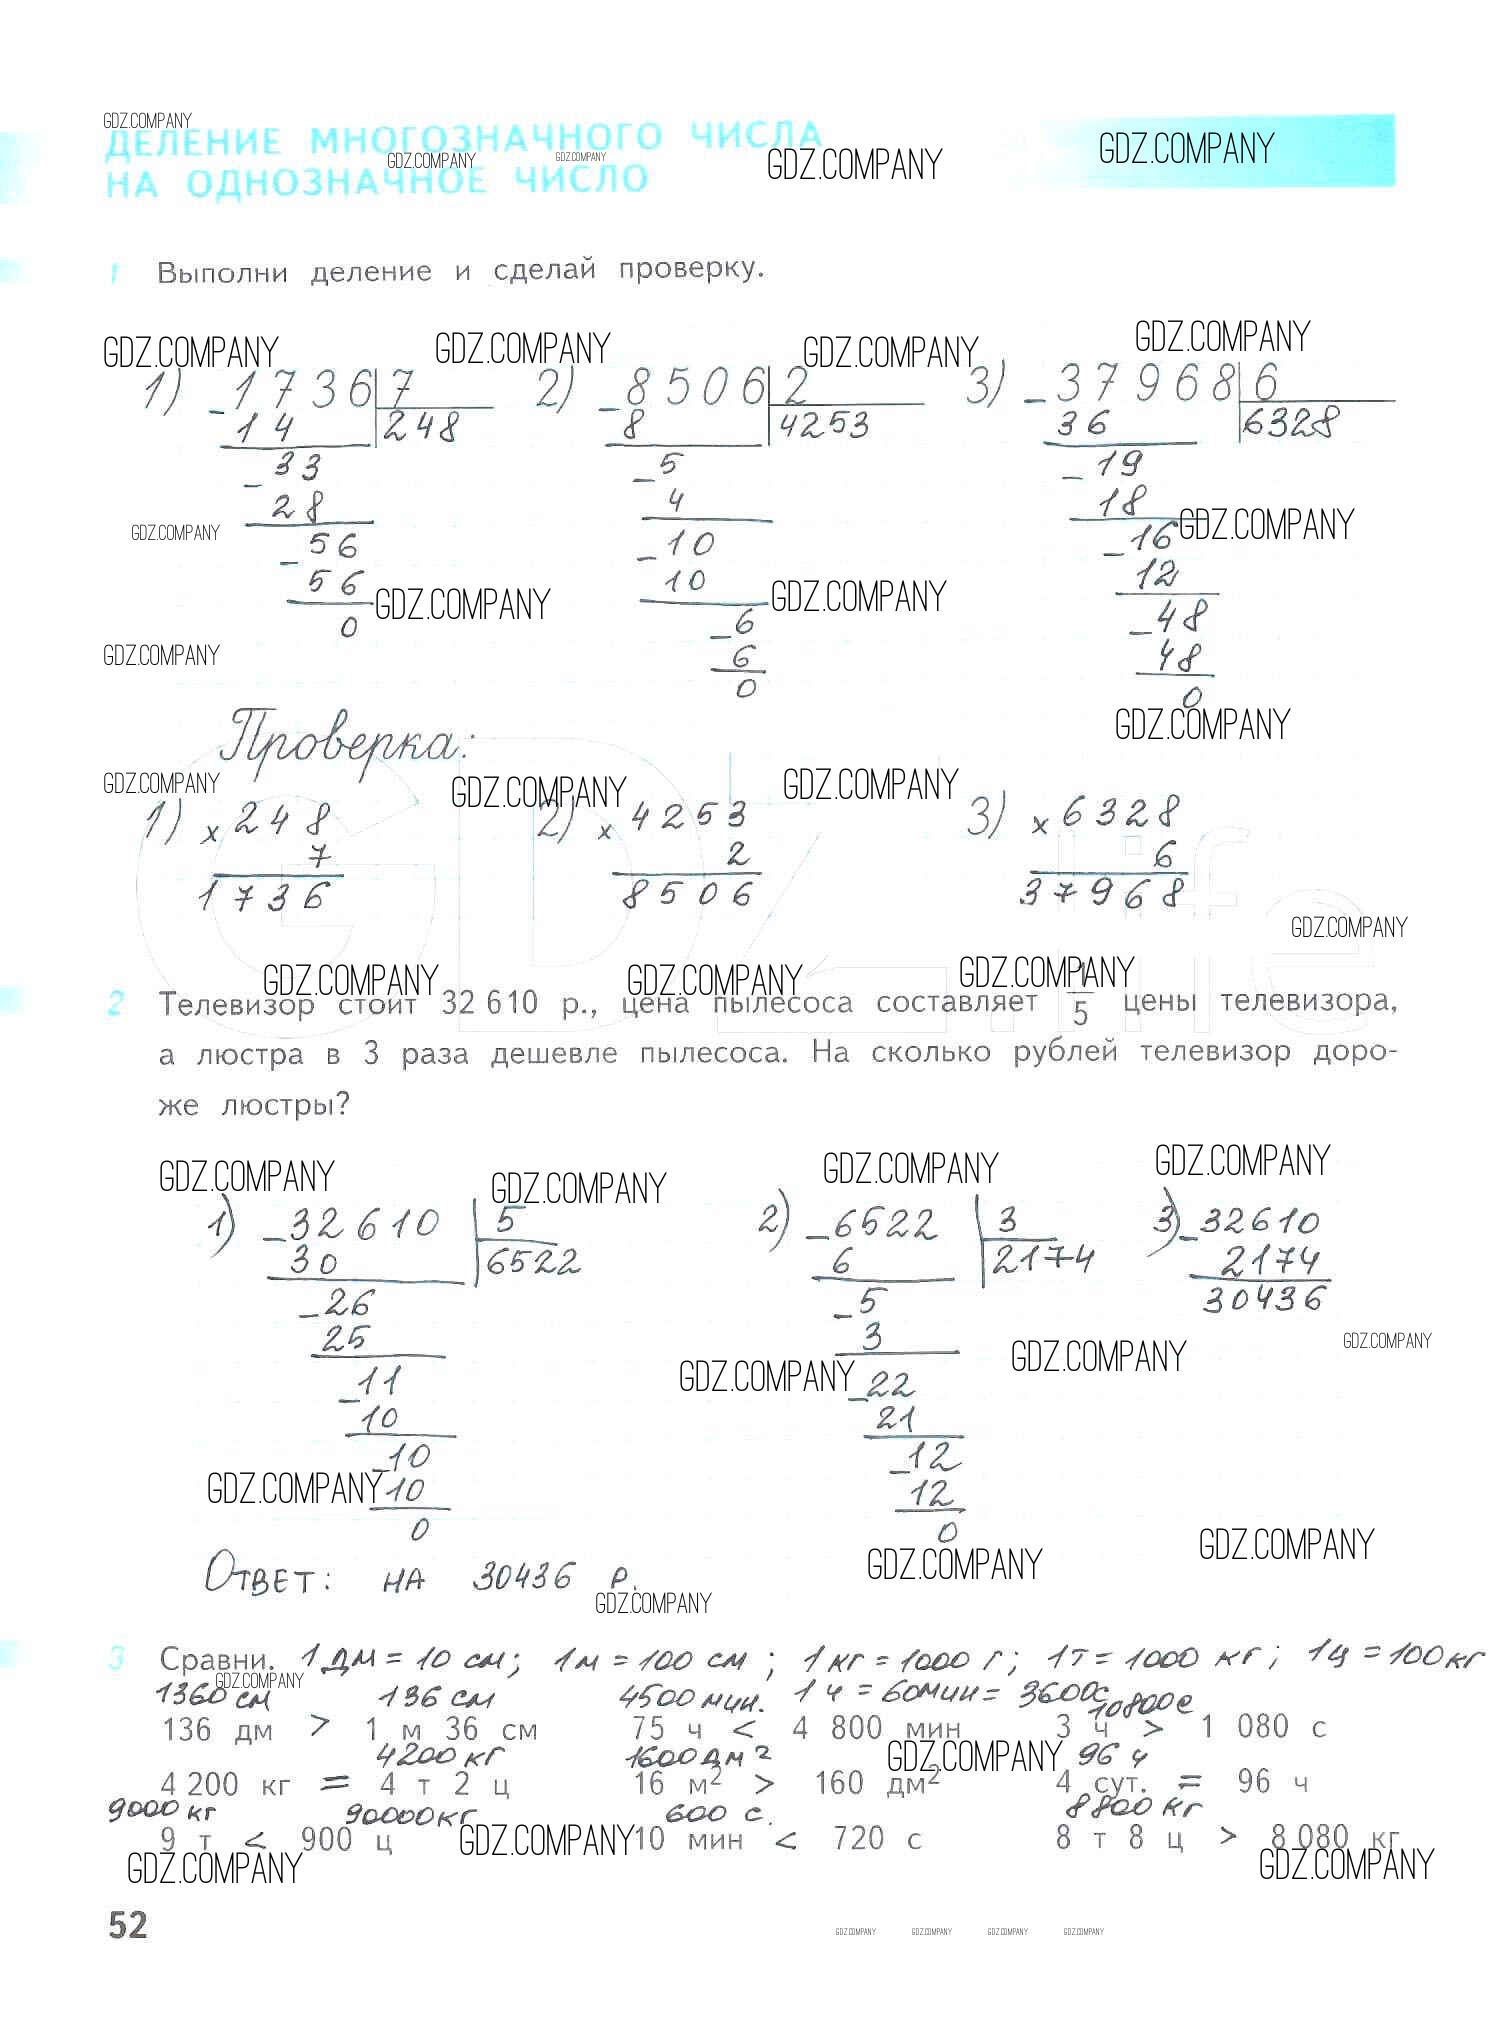 GDZ.COMPANY
ДЕЛЕНИЕ МНОГОЗНАЧНОГО ЧИСЛА
GDZ.COMPANY GDZ.COMPANY GDZ.COMPANY GDZ.COMPANY
НА ОДНОЗНАЧНОЕ ЧИСЛО
1 Выполни деление и сделай проверку.
GDZ.COMPANY GDZ.COMPANY GDZ.COMPANY GDZ.COMPANY
1) -1736 7 2) -8506 2 3) -37968 6
14 248 8 4253 36 6328
-33 -5 -19
28 4 18 GDZ.COMPANY
GDZ.COMPANY -56 -10 -16
56 GDZ.COMPANY 10 GDZ.COMPANY 12
0 -6 -48
GDZ.COMPANY 6 48
0 0
GDZ.COMPANY
Проверка:
GDZ.COMPANY GDZ.COMPANY GDZ.COMPANY
1) x 248 2) x 4253 3) x 6328
7 2 6
1736 8506 37968
GDZ.life
GDZ.COMPANY
GDZ.COMPANY GDZ.COMPANY GDZ.COMPANY
2 Телевизор стоит 32 610 р., цена пылесоса составляет 1/5 цены телевизора,
а люстра в 3 раза дешевле пылесоса. На сколько рублей телевизор доро-
же люстры?
GDZ.COMPANY GDZ.COMPANY GDZ.COMPANY GDZ.COMPANY
1) -32610 5 2) -6522 3 3) -32610
30 6522 6 2174 2174
-26 -5 30436
25 3 GDZ.COMPANY GDZ.COMPANY
-11 GDZ.COMPANY -22
10 21
-10 -12
GDZ.COMPANY 10 12
0 0
GDZ.COMPANY GDZ.COMPANY
Ответ: на 30436 р.
GDZ.COMPANY
3 Сравни. 1 дм = 10 см; 1 м = 100 см; 1 кг = 1000 г; 1 т = 1000 кг; 1 ц = 100 кг
GDZ.COMPANY
1360 см 136 см 4500 мин. 1 ч = 60 мин = 3600 с 10800 с
136 дм > 1 м 36 см 75 ч < 4 800 мин 3 ч > 1 080 с
4200 кг 1600 дм² GDZ.COMPANY 96 ч
4 200 кг = 4 т 2 ц 16 м² > 160 дм² 4 сут. = 96 ч
9000 кг 90000 кг 600 с. 8800 кг
9 т < 900 ц GDZ.COMPANY 10 мин < 720 с 8 т 8 ц > 8 080 кг
GDZ.COMPANY GDZ.COMPANY
52
GDZ.COMPANY GDZ.COMPANY GDZ.COMPANY GDZ.COMPANY